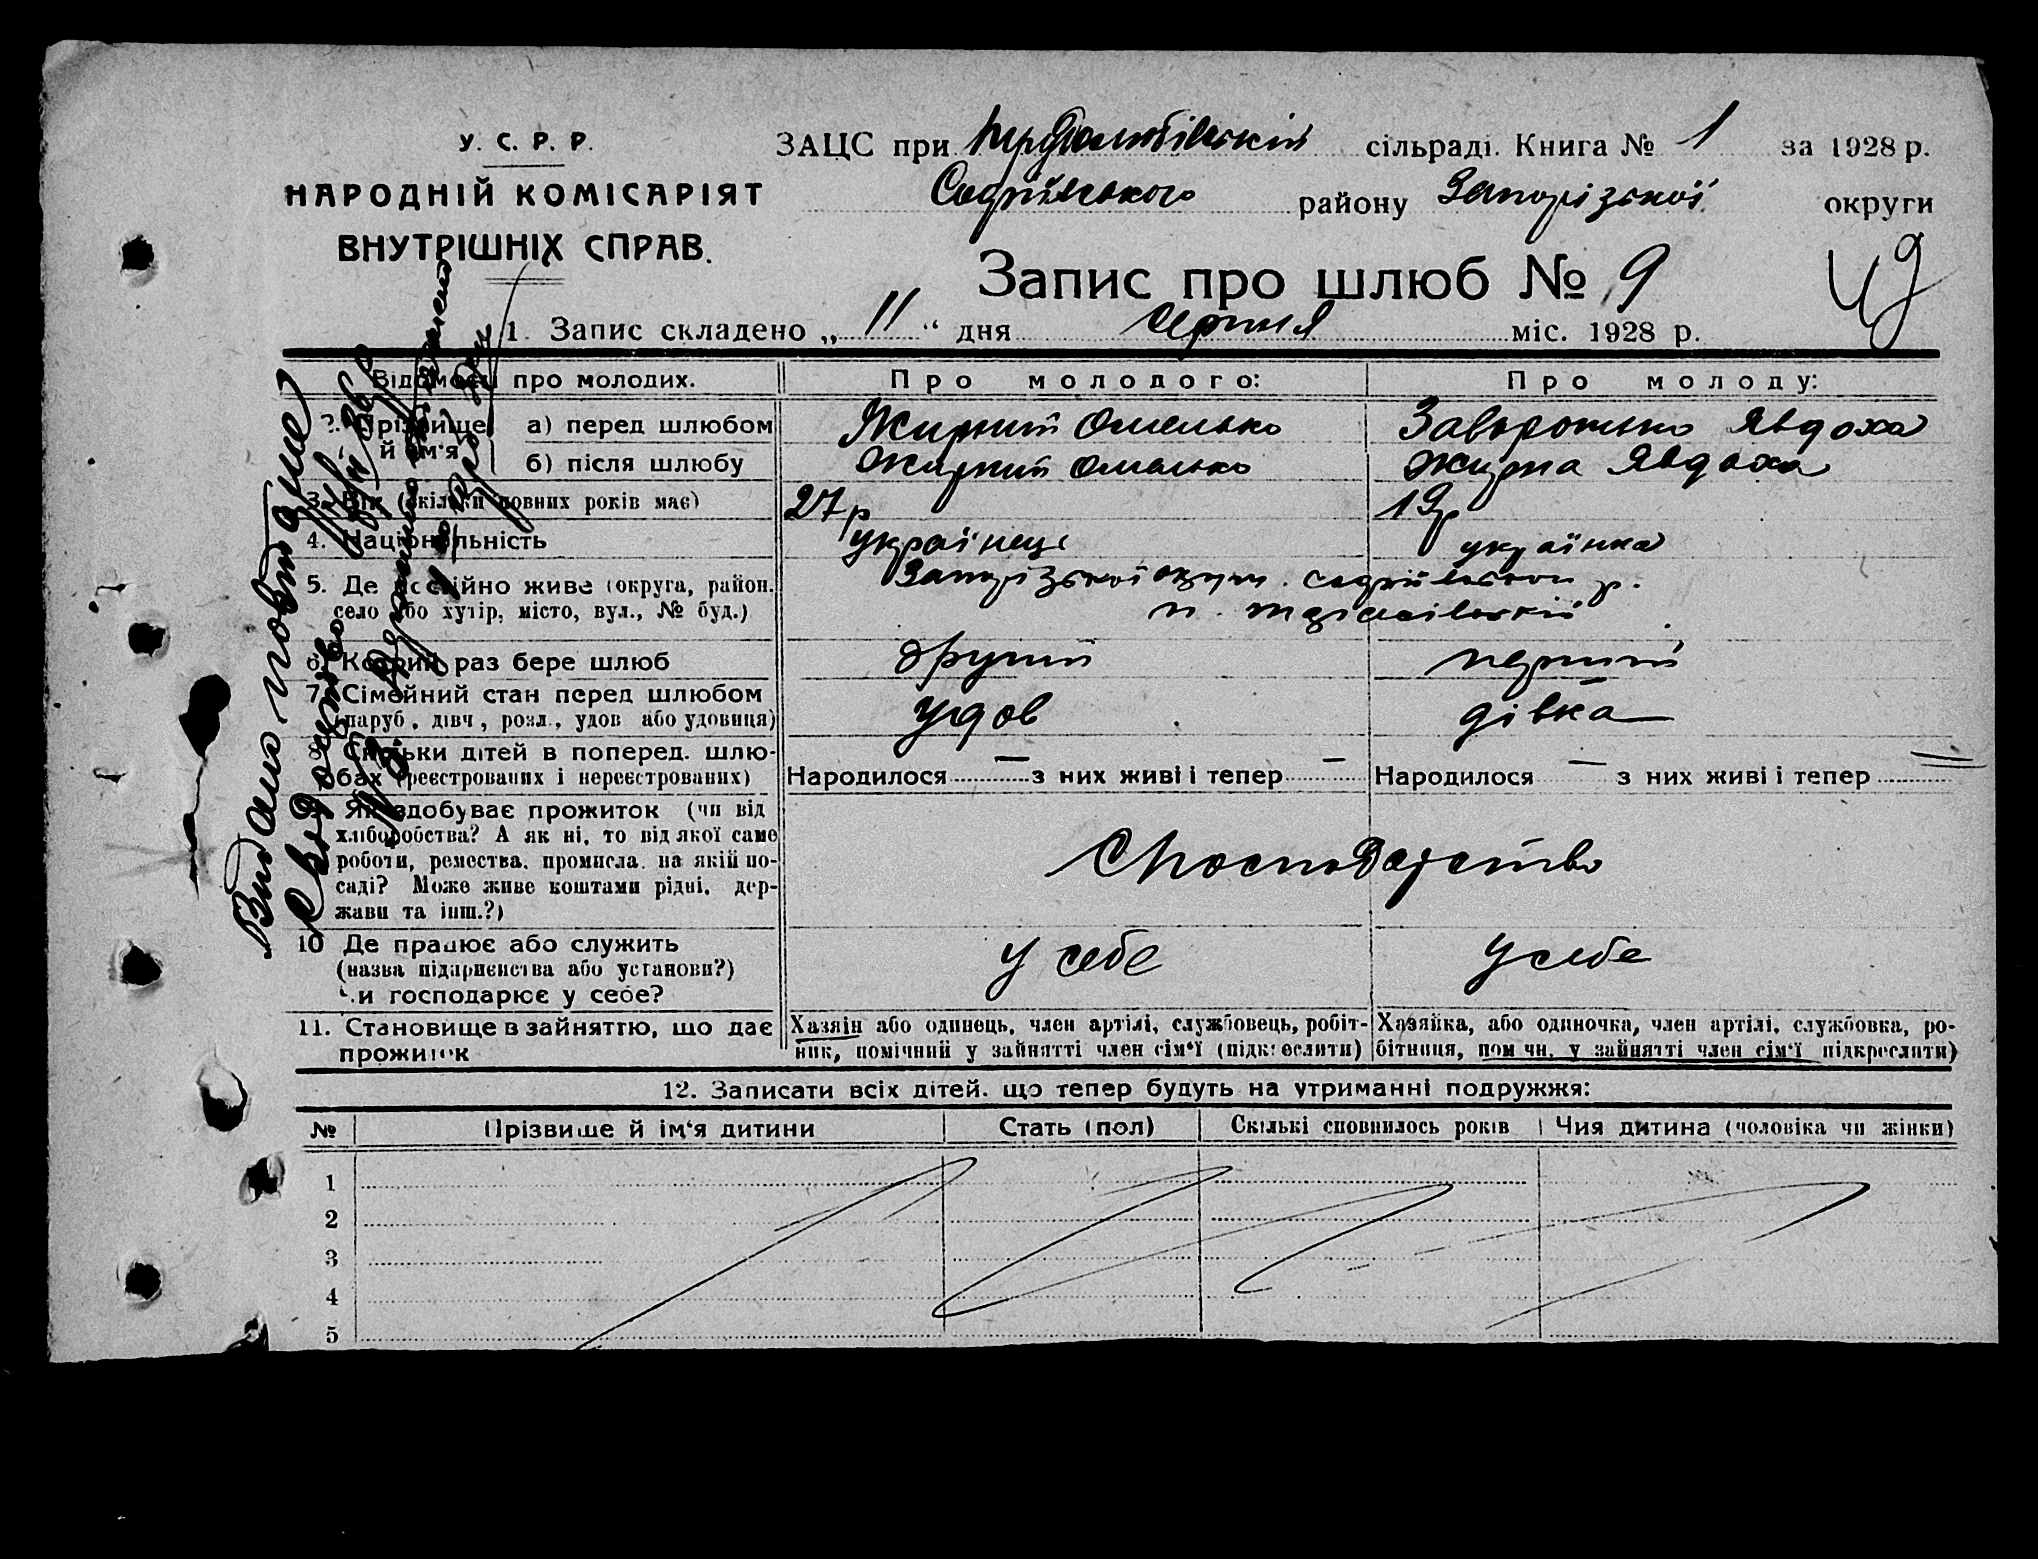 У. С. Р. Р.
НАРОДНІЙ КОМІСАРІЯТ
ВНУТРІШНІХ СПРАВ.
ЗАЦС при сільраді. Книга № 1 за 1928 р.
Софіївського району Запорізької округи
Запис про шлюб № 9
49
1. Запис складено „ 11 “ дня серпня міс. 1928 р.
Відомості про молодих. Про молодого: Про молоду:
2. Прізвище й ім'я а) перед шлюбом Жирний Омелько Явдоха
б) після шлюбу Жирний Омелько Жирна Явдоха
3. Вік (скільки повних років має) 27 р 19 р
4. Національність українець українка
5. Де постійно живе (округа, район,
село або хутір, місто, вул., № буд.)
Запорізької округи. Софіївської р.
6. Котрий раз бере шлюб другий перший
7. Сімейний стан перед шлюбом
(паруб., дівч., розл., удов або удовиця) удов дівка
8. Скільки дітей в поперед. шлю-
бах (реєстрованих і нереєстрованих) Народилося — з них живі і тепер — Народилося — з них живі і тепер
9. Як здобуває прожиток (чи від
хліборобства? А як ні, то від якої саме
роботи, ремества, промисла, на якій по-
саді? Може живе коштами рідні, дер-
жави та інш.?)
Господарство
10 Де працює або служить
(назва підприємства або установи?)
Чи господарює у себе?
у себе у себе
11. Становище в зайняттю, що дає
прожиток
Хазяїн або одинець, член артілі, службовець, робіт-
ник, помічний у зайнятті член сім'ї (підкреслити)
Хазяйка, або одиночка, член артілі, службовка, ро-
бітниця, помічн. у зайнятті член сім'ї підкреслити)
12. Записати всіх дітей, що тепер будуть на утриманні подружжя:
№ Прізвище й ім'я дитини Стать (пол) Скількі сповнилось років Чия дитина (чоловіка чи жінки)
1
2
3
4
5
Видано повторне
свідоцтво